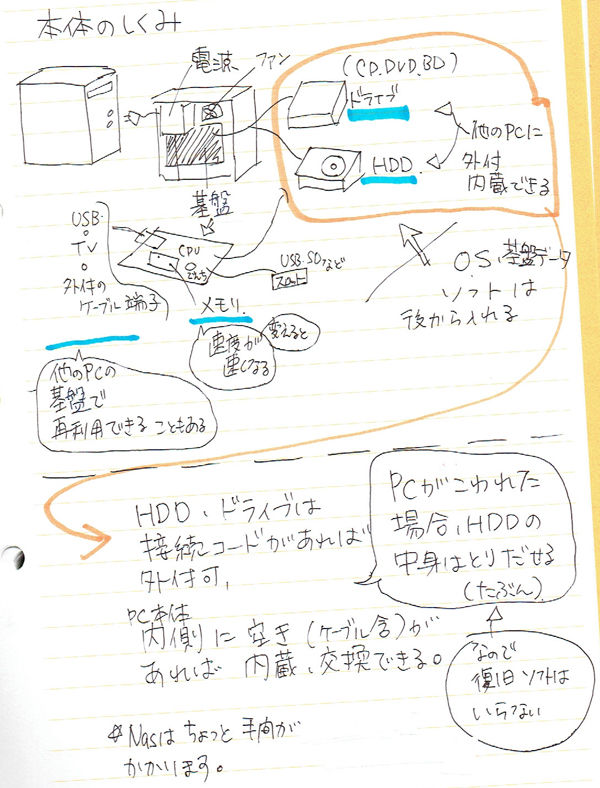 本体のしくみ
電源
ファン
(CD.DVD.BD)
ドライブ
HDD.
他のPCに
外付
内蔵できる
基盤
USB.
TV
外付の
ケーブル端子
CPU
USB.SDなど
スロット
メモリ.
変えると
速度が
速くなる
OS、基盤データ
ソフトは
後から入れる
他のPCの
基盤で
再利用できることもある
HDD、ドライブは
接続コードがあれば
外付可、
PC本体
内側に空き(ケーブル含)が
あれば内蔵、交換できる。
PCがこわれた
場合、HDDの
中身はとりだせる
(たぶん)
なので
復旧ソフトは
いらない
*Nasはちょっと手間が
かかります。